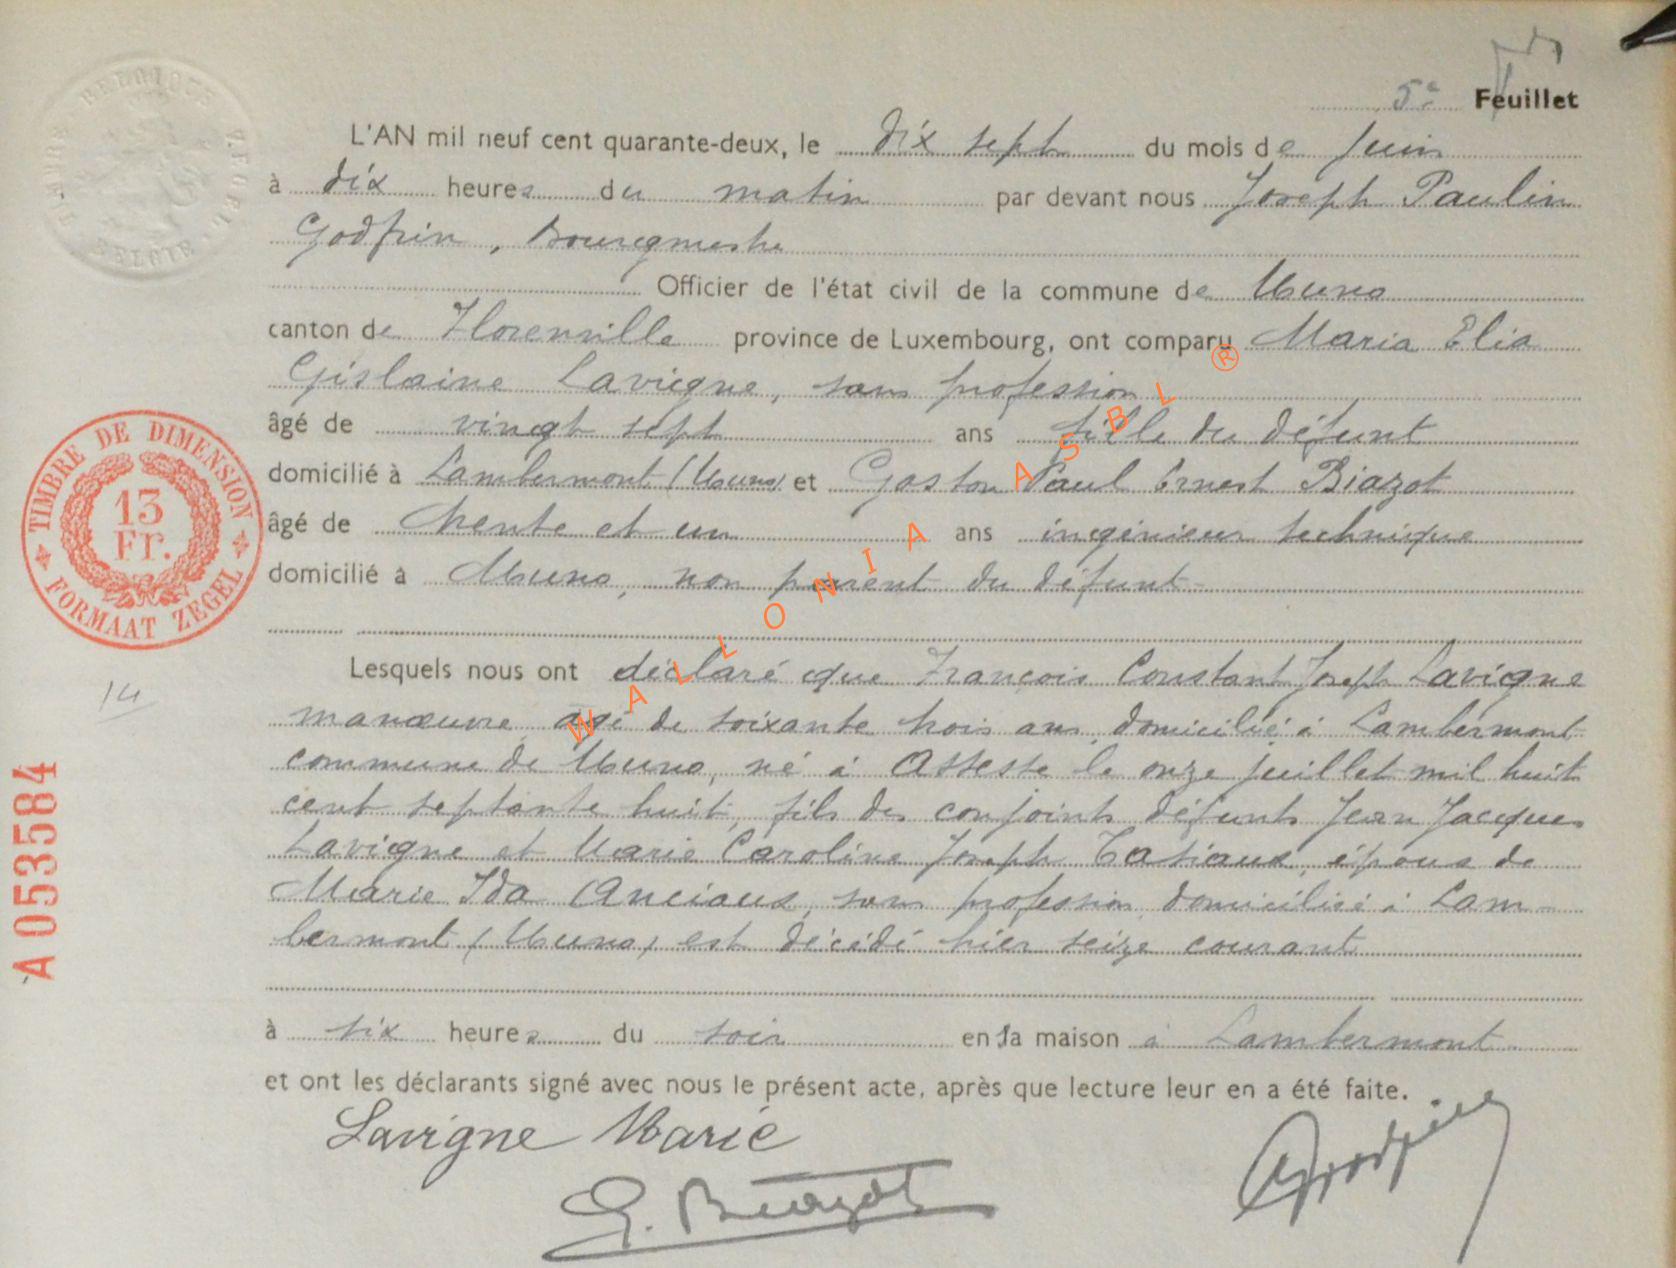 5e Feuillet
L'AN mil neuf cent quarante-deux, le dix sept du mois de Juin
à dix heures du matin par devant nous Joseph Paulin
Godfrin, Bourgmestre
Officier de l'état civil de la commune de Muno
canton de Florenville province de Luxembourg, ont comparu Maria Elia
Gislaine Lavigne, sans profession
âgé de vingt sept ans fille du défunt
domicilié à Lambermont (Muno) et Gaston Paul Ernest Biazot
âgé de trente et un ans ingénieur technique
domicilié à Muno, non parent du défunt
Lesquels nous ont déclaré que François Constant Joseph Lavigne
manœuvre agé de soixante trois ans, domicilié à Lambermont
commune de Muno, né à Assesse le onze juillet mil huit
cent septante huit, fils des conjoints défunts Jean Jacques
Lavigne et Marie Caroline Joseph Tasiaux, époux de
Marie Ida Anciaux, sans profession, domiciliée à Lam-
bermont (Muno) est décédé hier seize courant
à six heures du soir en la maison à Lambermont
et ont les déclarants signé avec nous le présent acte, après que lecture leur en a été faite.
Lavigne Marie
G. Biazot
Godfrin
BELGIQUE
BELGIE
TIMBRE DE DIMENSION
13
Fr.
FORMAAT ZEGEL
14
A 053584
WALLONIA ASBL ®